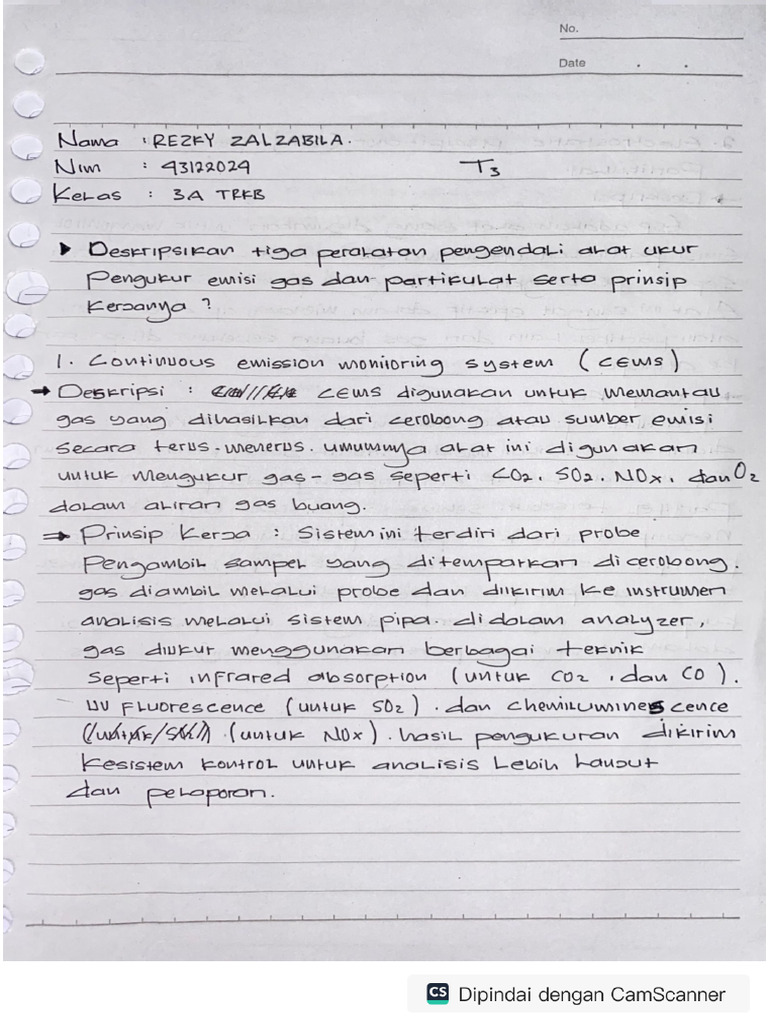 No.
Date
Nama : REZKY ZALZABILA.
Nim : 43122024
T3
Kelas : 3A TRKB
▶ Deskripsikan tiga peralatan pengendali alat ukur
Pengukur emisi gas dan partikulat serta prinsip
Kerjanya ?
1. Continuous emission monitoring system (CEMS)
→ Deskripsi : CEMS digunakan untuk memantau
gas yang dihasilkan dari cerobong atau sumber emisi
secara terus-menerus. umumnya alat ini digunakan
untuk mengukur gas-gas seperti CO2, SO2, NOx, dan O2
dalam aliran gas buang.
⇒ Prinsip Kerja : Sistem ini terdiri dari probe
Pengambil sampel yang ditempatkan dicerobong.
gas diambil melalui probe dan diikirim ke instrumen
analisis melalui sistem pipa. didalam analyzer,
gas diukur menggunakan berbagai teknik
seperti infrared absorption (untuk CO2, dan CO).
UV Fluorescence (untuk SO2). dan chemiluminescence
(untuk NOx). hasil pengukuran dikirim
kesistem kontrol untuk analisis lebih lanjut
dan pelaporan.
CS Dipindai dengan CamScanner